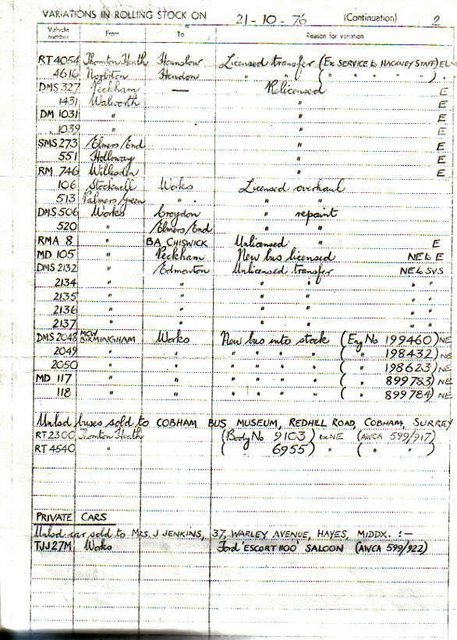 VARIATIONS IN ROLLING STOCK ON 21-10-76 (Continuation) 2
Vehicle number From To Reason for variation
RT 4054 Thornton Heath Hounslow Licensed transfer (Ex SERVICE to HACKNEY STAFF) EL NE
4616 Norbiton Hendon " " ( " " " " ) "
DMS 327 Peckham — Relicensed E
1431 Walworth " E
DM 1031 " " E
1039 " " E
SMS 273 Elmers End " E
551 Holloway " E
RM 746 Willesden " E
106 Stockwell Works Licensed overhaul
513 Palmers Green " " "
DMS 506 Works Croydon " repaint
520 " Elmers End " "
RMA 8 " BA CHISWICK Unlicensed " E
MD 105 " Peckham New bus licensed NEL E
DMS 2132 " Edmonton Unlicensed transfer NEL SVS
2134 " " " " " "
2135 " " " " " "
2136 " " " " " "
2137 " " " " " "
DMS 2048 MCW BIRMINGHAM Works New bus into stock (Eng No 199460) NE
2049 " " " " " " ( " 198432) NE
2050 " " " " " " ( " 198623) NE
MD 117 " " " " " " ( " 899783) NE
118 " " " " " " ( " 899784) NE
Unlcd buses sold to COBHAM BUS MUSEUM, REDHILL ROAD, COBHAM, SURREY
RT 2300 Thornton Heath (Body No 9103) ex NE (AWCA 599/917)
RT 4540 " ( " 6955) " ( " " )
PRIVATE CARS
Unlcd car sold to MRS. J JENKINS, 37, WARLEY AVENUE, HAYES, MIDDX. :—
TJJ 27M Works Ford 'ESCORT 1100' SALOON (AWCA 599/922)